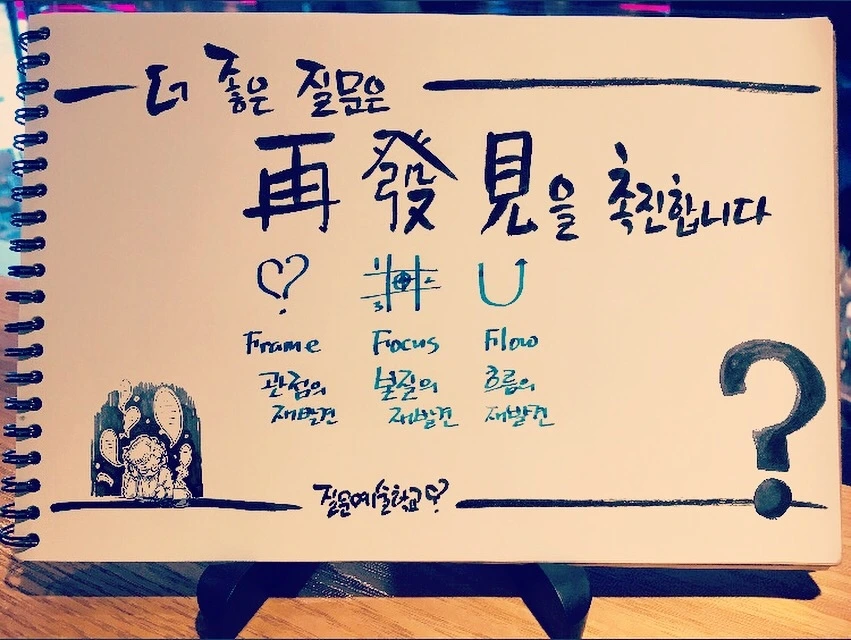 더 좋은 질문은
再發見을 촉진합니다
Frame Focus Flow
관점의 본질의 흐름의
재발견 재발견 재발견
질문예술학교
?